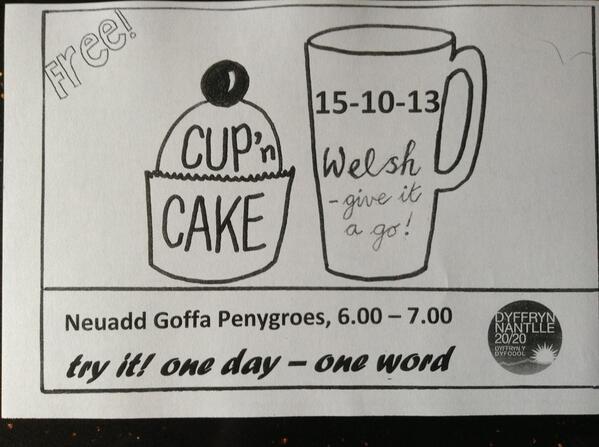 Free!
CUP'n
CAKE
15-10-13
Welsh
- give it
a go!
Neuadd Goffa Penygroes, 6.00 – 7.00
try it! one day – one word
DYFFRYN
NANTLLE
20/20
DYFFRYN Y
DYFODOL